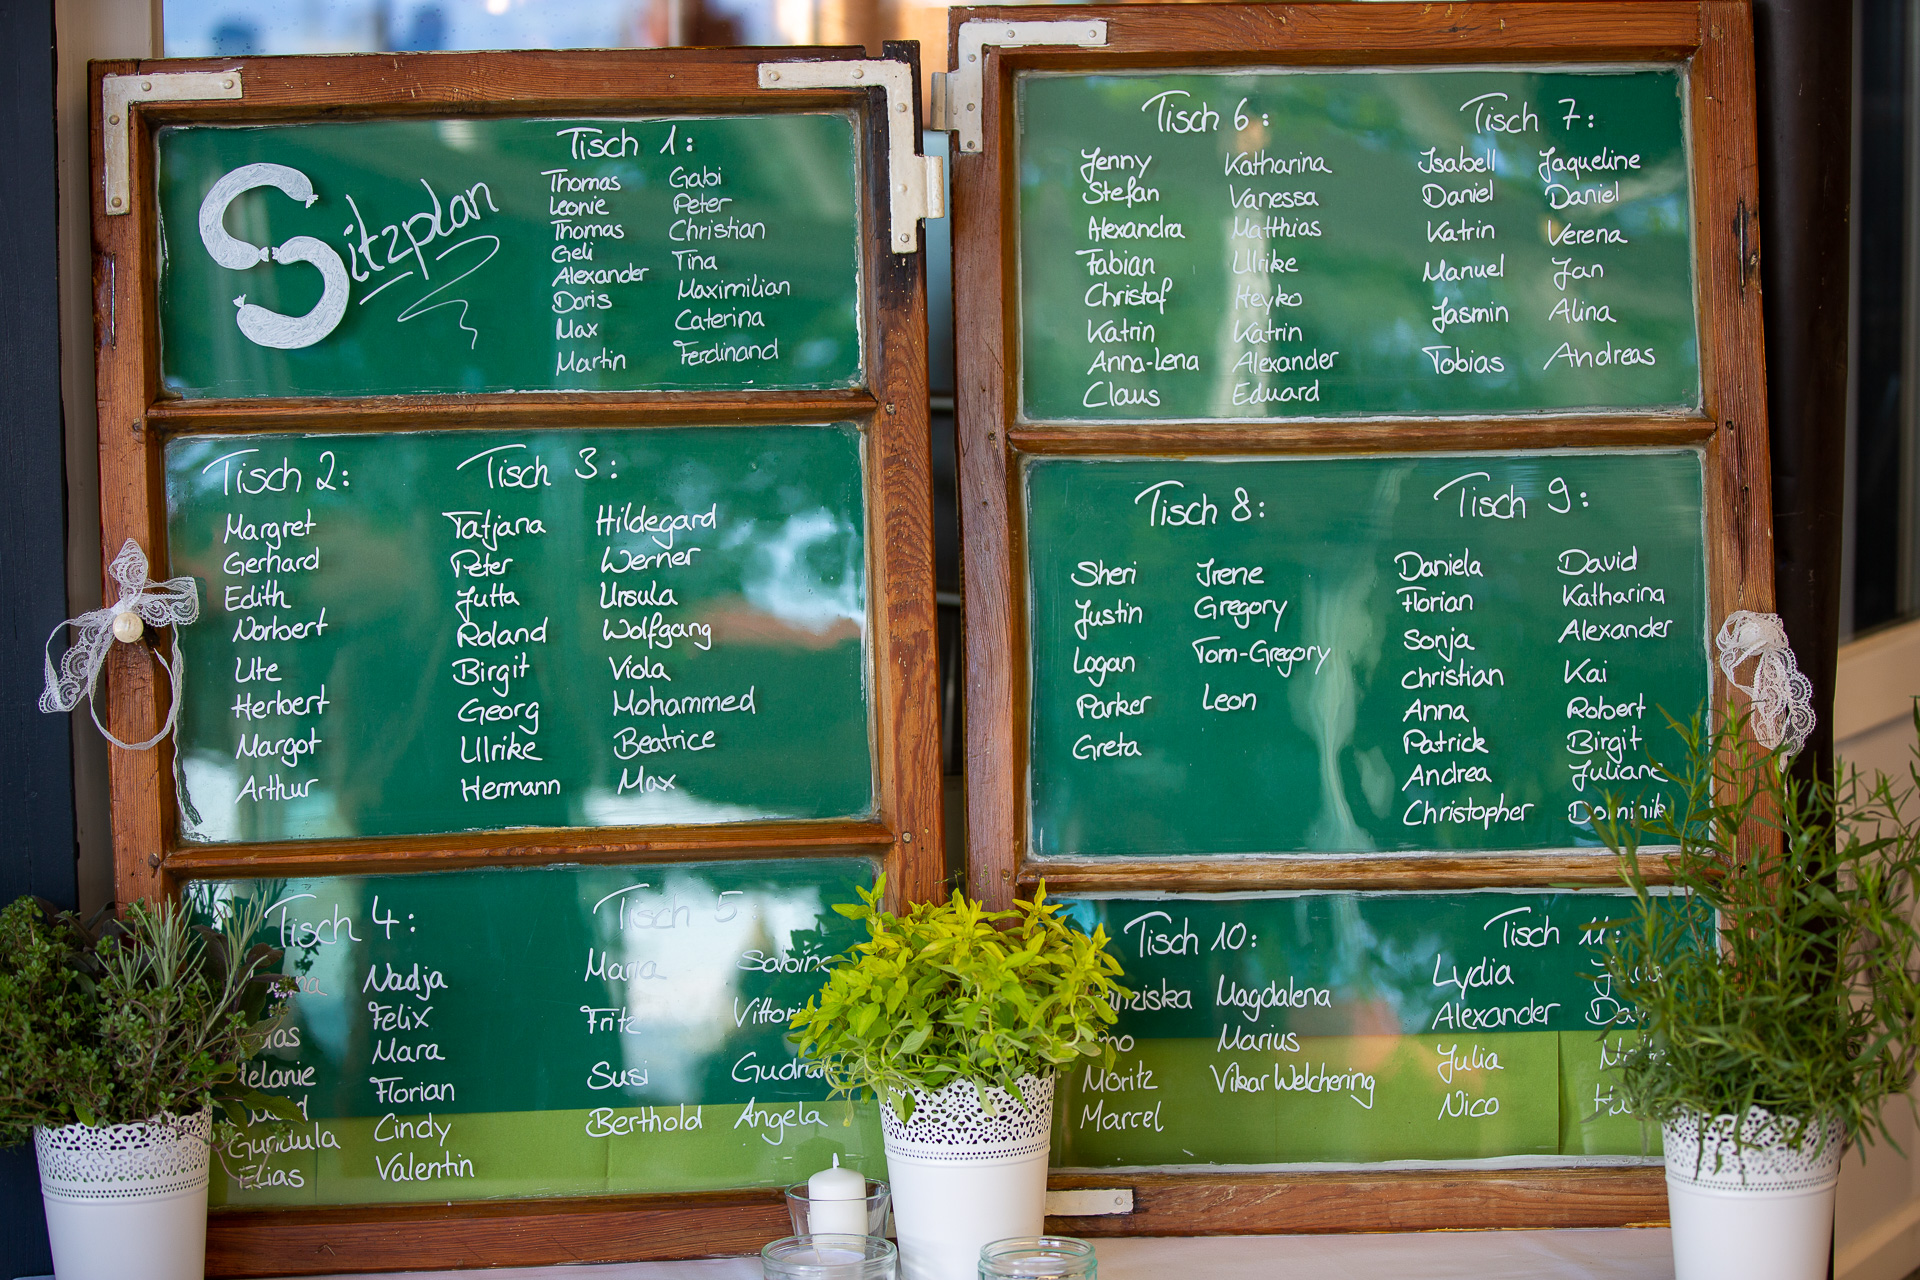 Sitzplan
Tisch 1:
Thomas
Leonie
Thomas
Geli
Alexander
Doris
Max
Martin
Gabi
Peter
Christian
Tina
Maximilian
Caterina
Ferdinand
Tisch 2:
Margret
Gerhard
Edith
Norbert
Ute
Herbert
Margot
Arthur
Tisch 3:
Tatjana
Peter
Jutta
Roland
Birgit
Georg
Ulrike
Hermann
Hildegard
Werner
Ursula
Wolfgang
Viola
Mohammed
Beatrice
Max
Tisch 4:
Melanie
Gundula
Elias
Nadja
Felix
Mara
Florian
Cindy
Valentin
Tisch 5:
Maria
Fritz
Susi
Berthold
Sabine
Gudrun
Angela
Tisch 6:
Jenny
Stefan
Alexandra
Fabian
Christof
Katrin
Anna-Lena
Claus
Katharina
Vanessa
Matthias
Ulrike
Heyko
Katrin
Alexander
Eduard
Tisch 7:
Isabell
Daniel
Katrin
Manuel
Jasmin
Tobias
Jaqueline
Daniel
Verena
Jan
Alina
Andreas
Tisch 8:
Sheri
Justin
Logan
Parker
Greta
Irene
Gregory
Tom-Gregory
Leon
Tisch 9:
Daniela
Florian
Sonja
Christian
Anna
Patrick
Andrea
Christopher
David
Katharina
Alexander
Kai
Robert
Birgit
Juliane
Dominik
Tisch 10:
Moritz
Marcel
Magdalena
Marius
Vikar Welchering
Tisch 11:
Lydia
Alexander
Julia
Nico